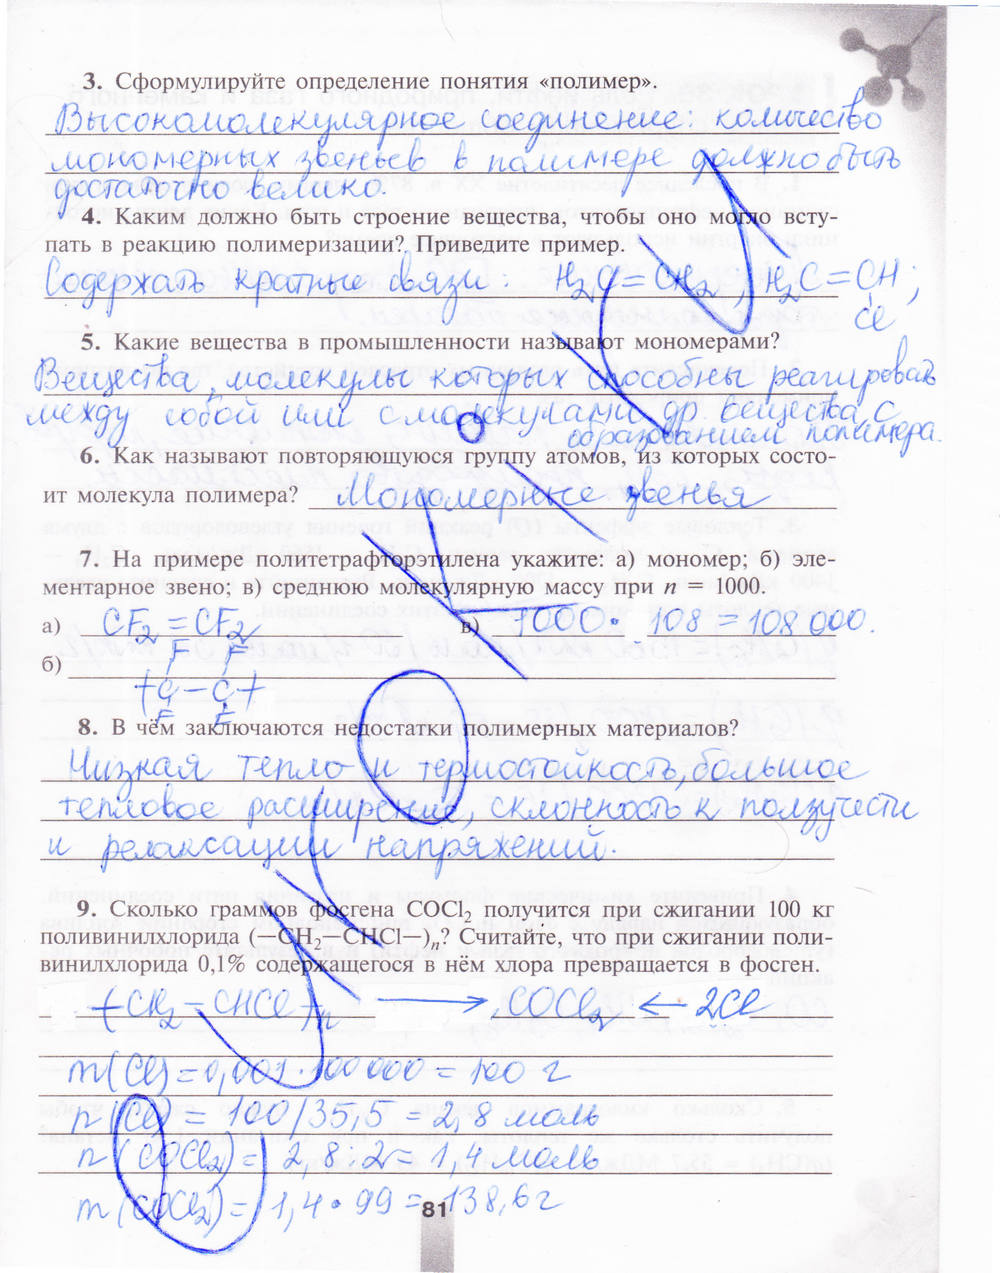 3. Сформулируйте определение понятия «полимер».
Высокомолекулярное соединение: количество
мономерных звеньев в полимере должно быть
достаточно велико.
4. Каким должно быть строение вещества, чтобы оно могло всту-
пать в реакцию полимеризации? Приведите пример.
Содержать кратные связи: H₂C=CH₂, H₂C=CH;
Cl
5. Какие вещества в промышленности называют мономерами?
Вещества, молекулы которых способны реагировать
между собой или с молекулами др. вещества с
образованием полимера.
6. Как называют повторяющуюся группу атомов, из которых состо-
ит молекула полимера? Мономерные звенья
7. На примере политетрафторэтилена укажите: а) мономер; б) эле-
ментарное звено; в) среднюю молекулярную массу при n = 1000.
а) CF₂=CF₂ в) 1000 · 108 = 108 000.
F F
б) (C–C)
F F
8. В чём заключаются недостатки полимерных материалов?
Низкая тепло- и термостойкость, большое
тепловое расширение, склонность к ползучести
и релаксации напряжений.
9. Сколько граммов фосгена COCl₂ получится при сжигании 100 кг
поливинилхлорида (—CH₂—CHCl—)ₙ? Считайте, что при сжигании поли-
винилхлорида 0,1% содержащегося в нём хлора превращается в фосген.
(CH₂–CHCl)n → COCl₂ ← 2Cl
m(Cl) = 0,001 · 100 000 = 100 г
n(Cl) = 100/35,5 = 2,8 моль
n(COCl₂) = 2,8:2 = 1,4 моль
m(COCl₂) = 1,4 · 99 = 138,6 г
81